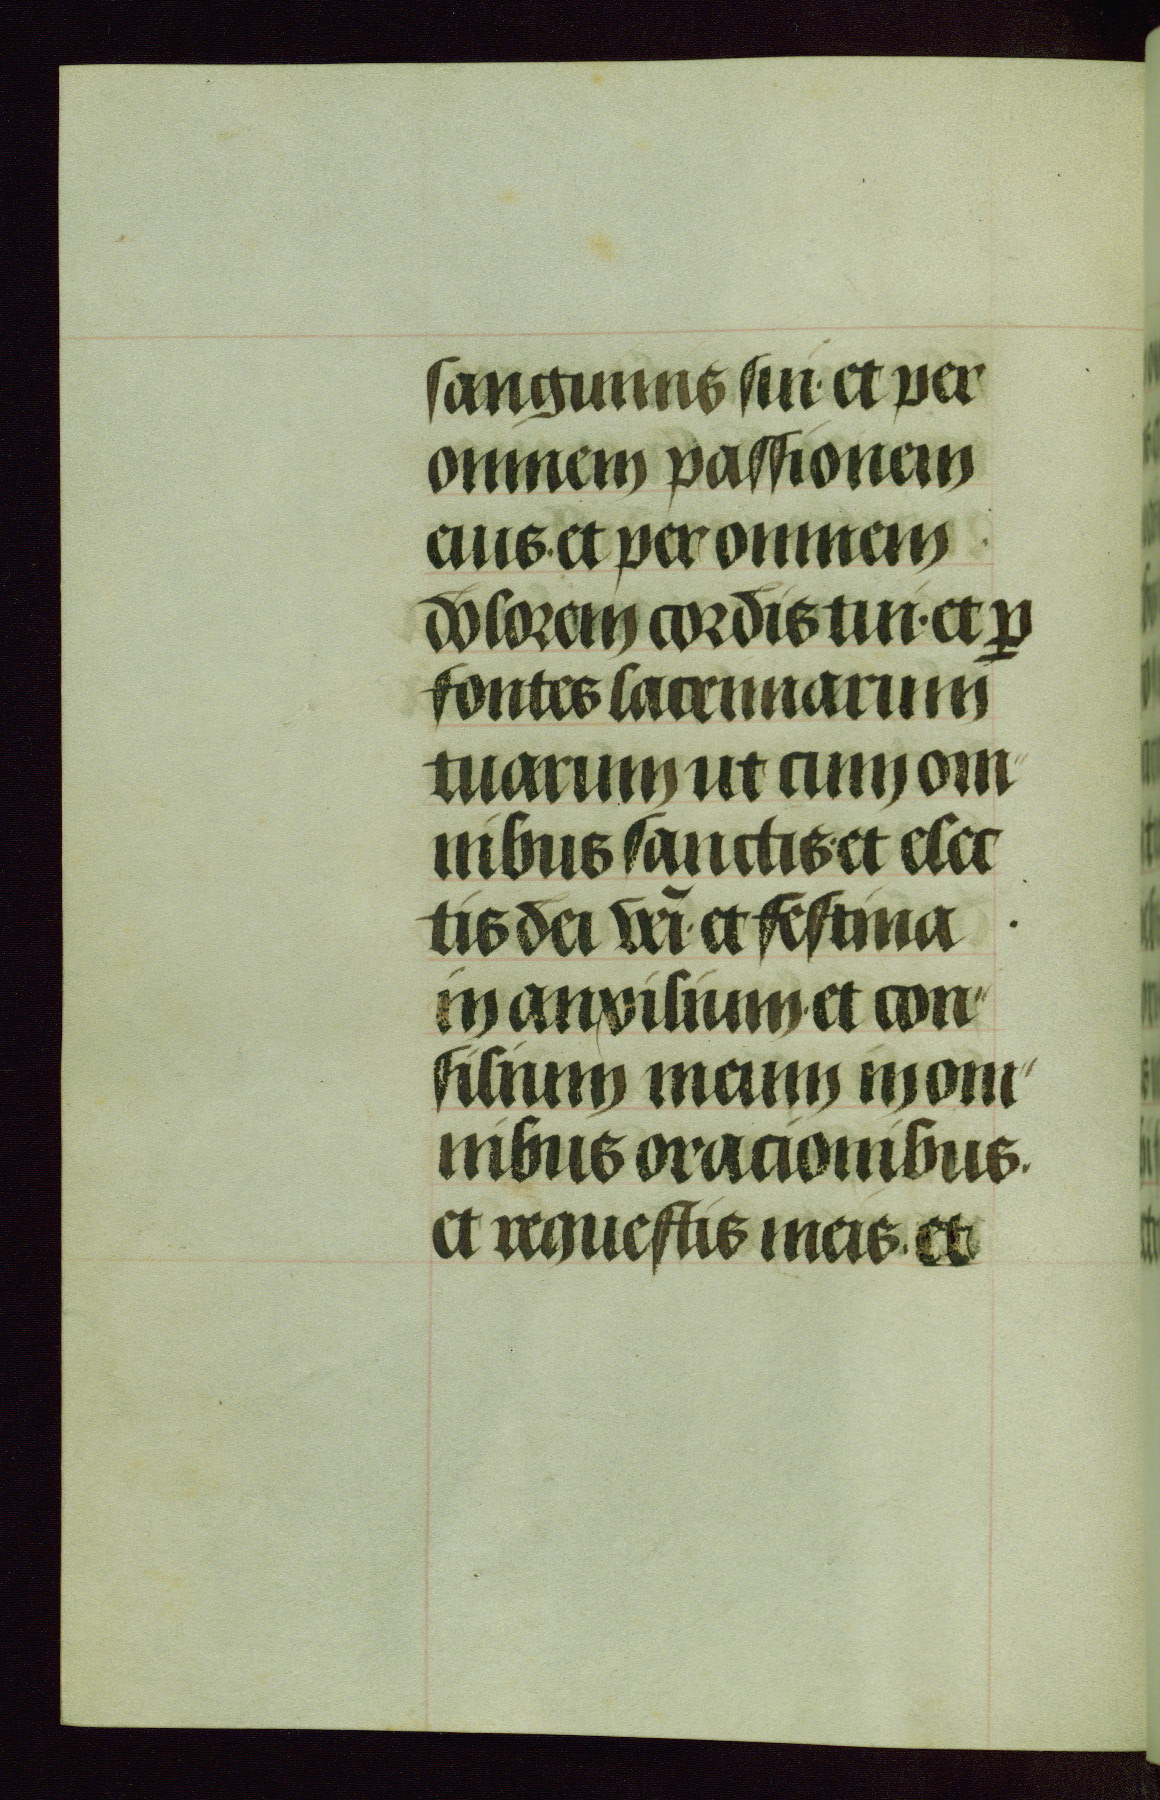 sanguinis sui· et per
omnem passionem
eius· et per omnem
dolorem cordis tui· et ꝑ
fontes lacrimarum
tuarum ut cum om"
nibus sanctis· et elec
tis dei vẽi· et festina
in anxilium· et con"
silium meum in om"
nibus oracionibus.
et requestis meis. et